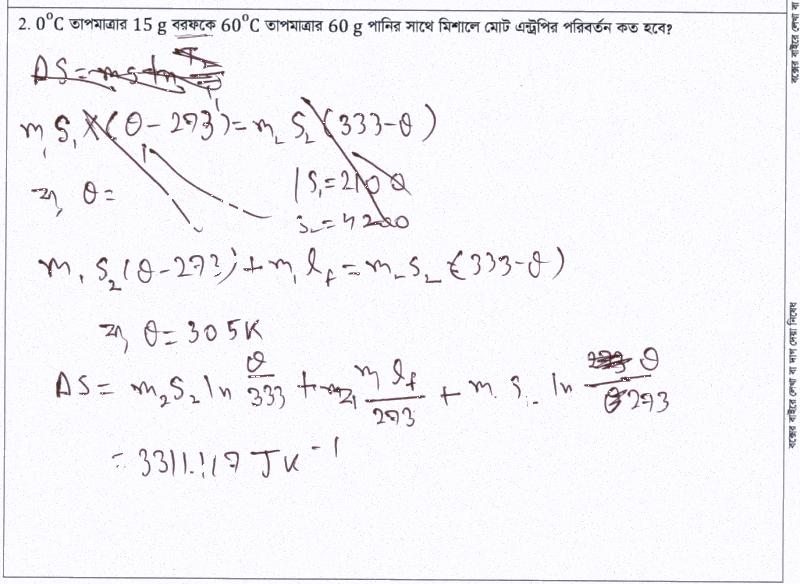 2. 0°C তাপমাত্রার 15 g বরফকে 60°C তাপমাত্রার 60 g পানির সাথে মিশালে মোট এন্ট্রপির পরিবর্তন কত হবে?
ΔS = ms ln
m₁ S₁ (θ - 293) = m₂ S₂ (333-θ)
বা, θ =
S₁ = 2100
S₂ = 4200
m₁ S₂ (θ-273) + m₁ l_f = m₂ S₂ (333-θ)
বা, θ = 305K
ΔS = m₂S₂ ln θ/333 + m l_f/273 + m₁ S₂ ln θ/273
= 3311.117 JK⁻¹
বক্সের বাইরে লেখা বা দাগ দেয়া নিষেধ
বক্সের বাইরে লেখা বা